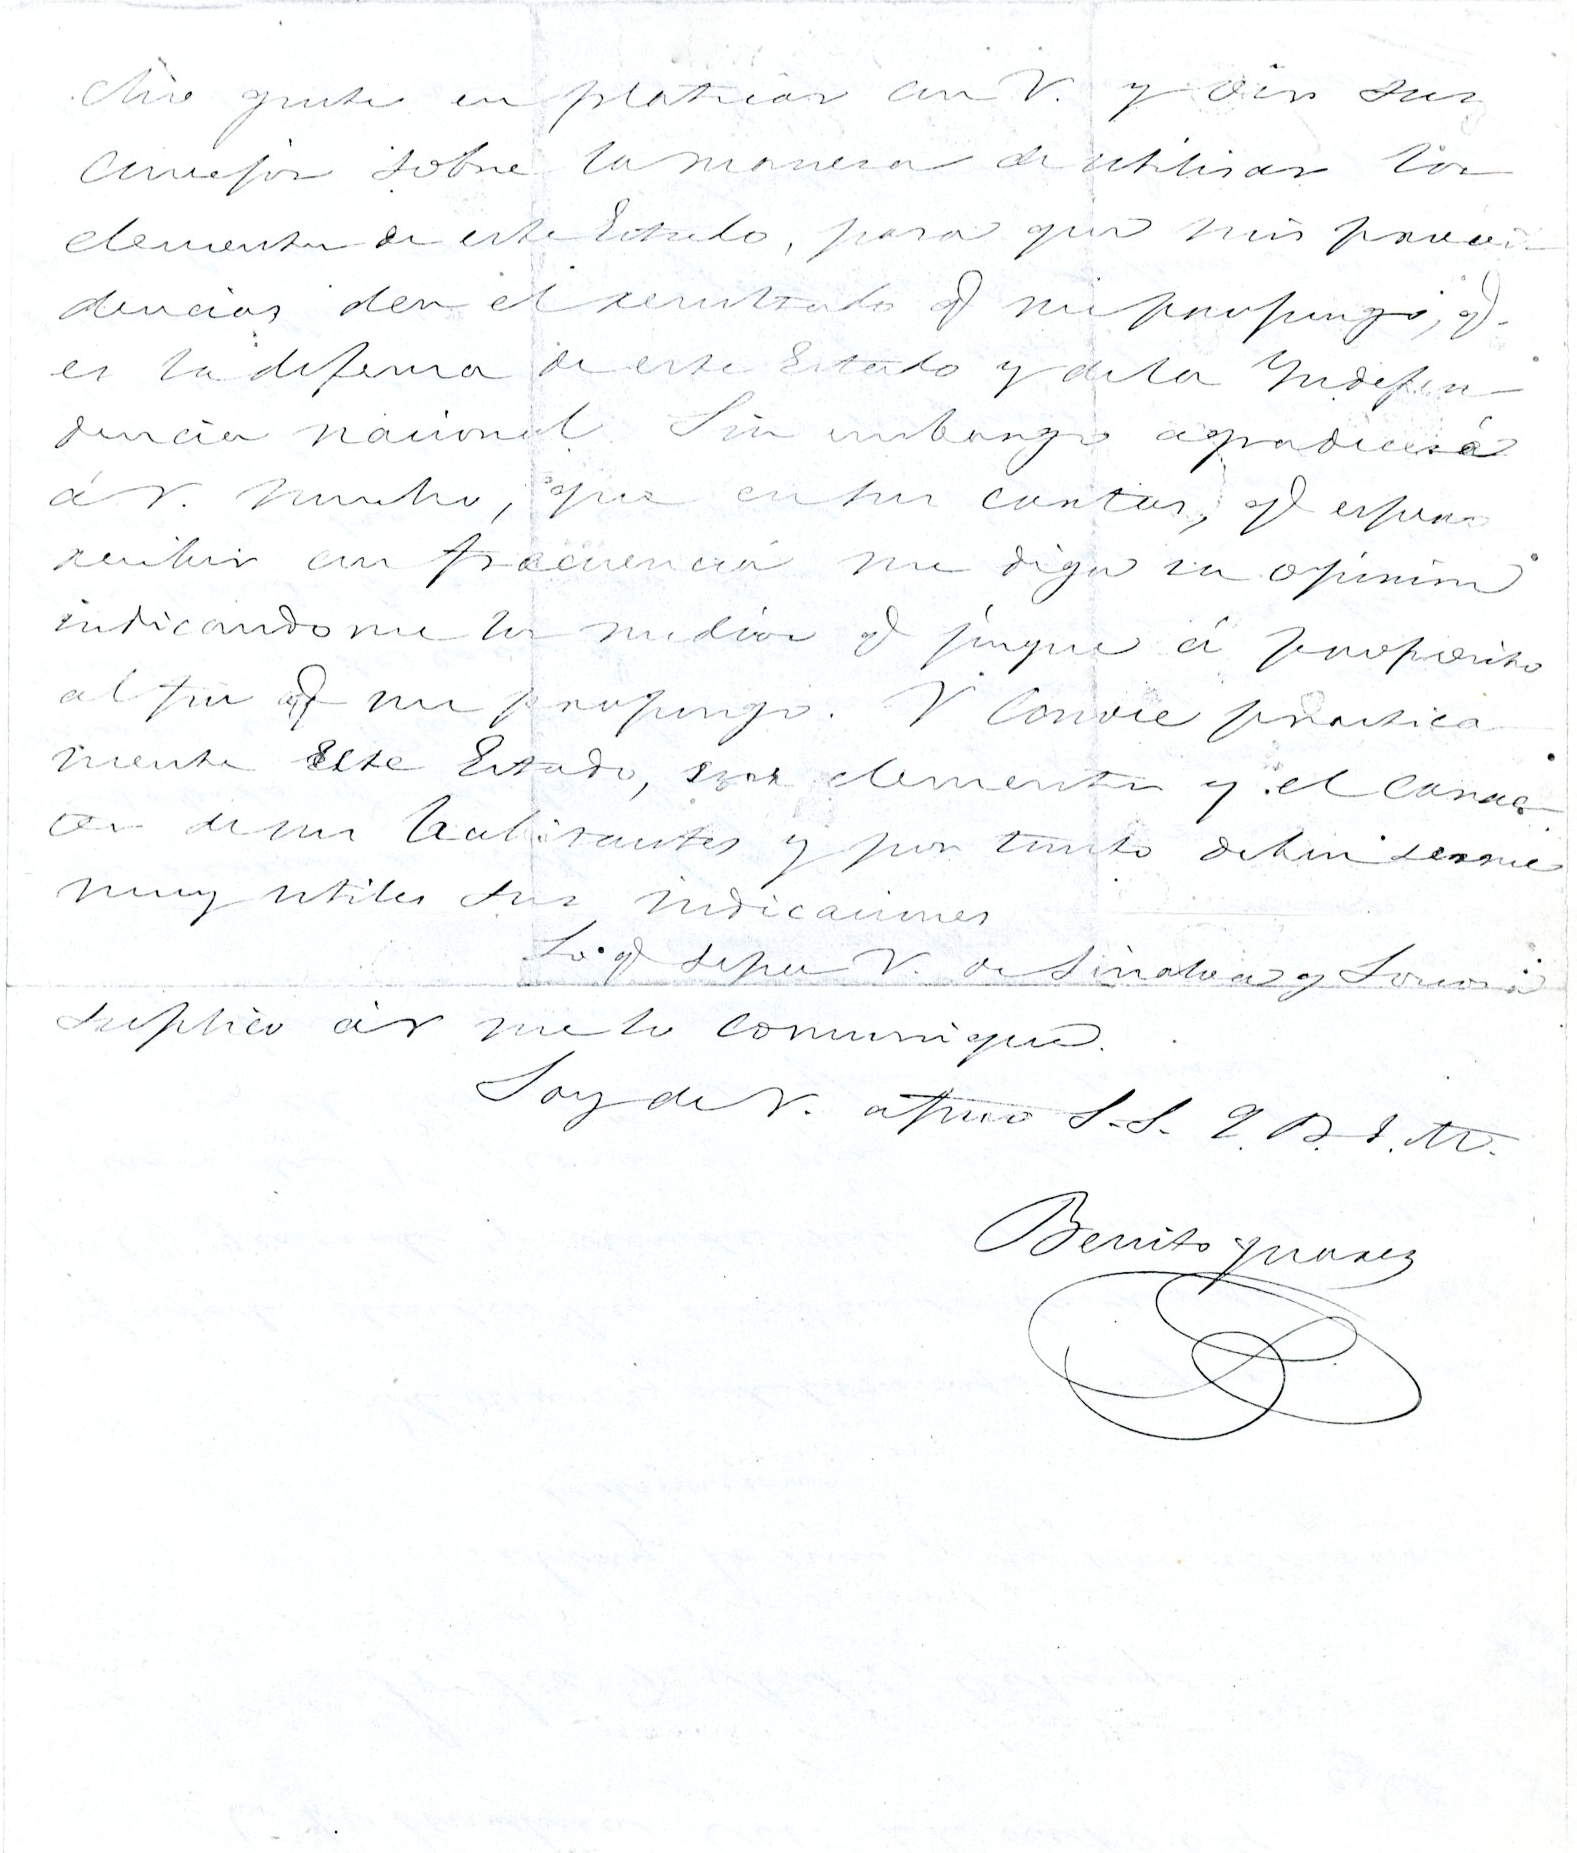 cho gusto en platicar con V. y oir sus
consejos sobre la manera de utilisar los
elementos de este Estado, para que mis provi
dencias den el resultado q̃ me propongo, q̃.
es la defensa de este Estado y de la Indepen-
dencia nacional. Sin embargo agradeceré
á V. mucho, que en sus cartas, q̃ espero
recibir con frecuencia me diga su opinion
indicandome los medios q̃ jusgue á proposito
al fin q̃ me propongo. V conoce practica
mente este Estado, sus elementos y el carac-
ter de sus habitantes y por tanto deben serme
muy utiles sus indicaciones
Lo q̃ sepa V. de Sinaloa y Sonora
suplico á V me lo comunique.
Soy de V. afmo S.S. Q. B. S. M.
Benito Juarez